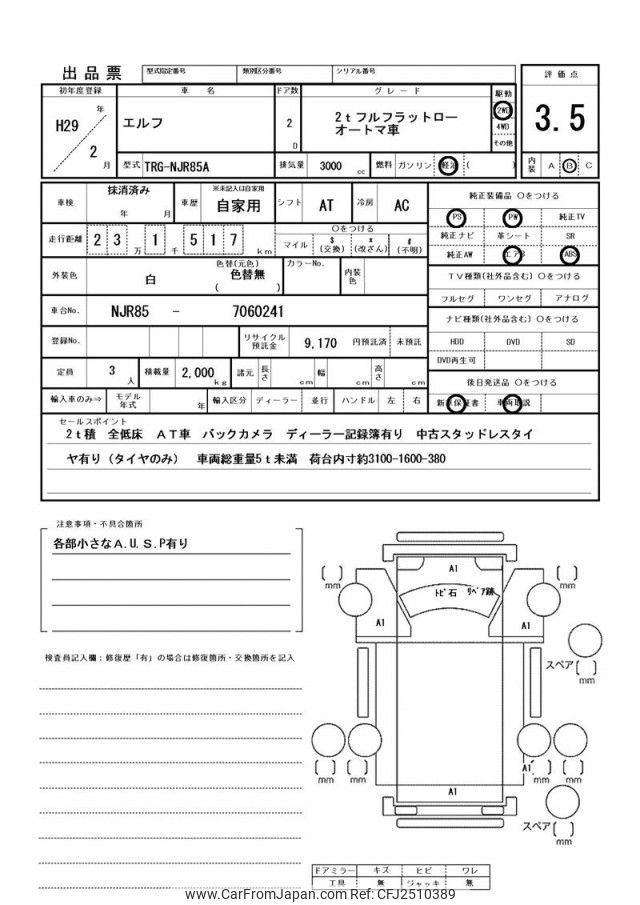 出品票 型式指定番号 類別区分番号 シリアル番号 評価点
初年度登録 車名 ドア数 グレード 駆動
H29 年 2 月 エルフ 2 D 2tフルフラットロー
オートマ車 2WD 4WD その他 3.5
型式 TRG-NJR85A 排気量 3000 cc 燃料 ガソリン 軽油 ( ) 内装 A B C
車検 抹消済み 年 月 車歴 ※未記入は自家用 自家用 シフト AT 冷房 AC 純正装備品 〇をつける
走行距離 23万 1千 517 km 〇をつける マイル $(交換) *(改ざん) #(不明) PS PW 純正TV
純正ナビ 革シート SR
外装色 白 色替(元色) 色替無 ( ) カラーNo. 内装色 純正AW エアB ABS
TV種類(社外品含む) 〇をつける
フルセグ ワンセグ アナログ
車台No. NJR85 - 7060241 ナビ種類(社外品含む) 〇をつける
登録No. リサイクル預託金 9,170 円預託済 未預託 HDD DVD SD
DVD再生可
定員 3 人 積載量 2,000 kg 諸元 長さ cm 幅 cm 高さ cm 後日発送品 〇をつける
輸入車のみ⇒ モデル年式 年 輸入区分 ディーラー 並行 ハンドル 左 右 新車保証書 車両取説
セールスポイント
2t積 全低床 AT車 バックカメラ ディーラー記録簿有り 中古スタッドレスタイ
ヤ有り(タイヤのみ) 車両総重量5t未満 荷台内寸約3100-1600-380
注意事項・不具合箇所
各部小さなA.U.S.P有り
検査員記入欄:修復歴「有」の場合は修復箇所・交換箇所を記入
A1
トビ石 リペア跡
[ ] mm [ ] mm
A1 A1
スペア [ ] mm
[ ] mm [ ] mm A1 [ ] mm [ ] mm
A1
スペア [ ] mm
ドアミラー キズ ヒビ ワレ
工具 無 ジャッキ 無
www.CarFromJapan.com Ref: CFJ2510389